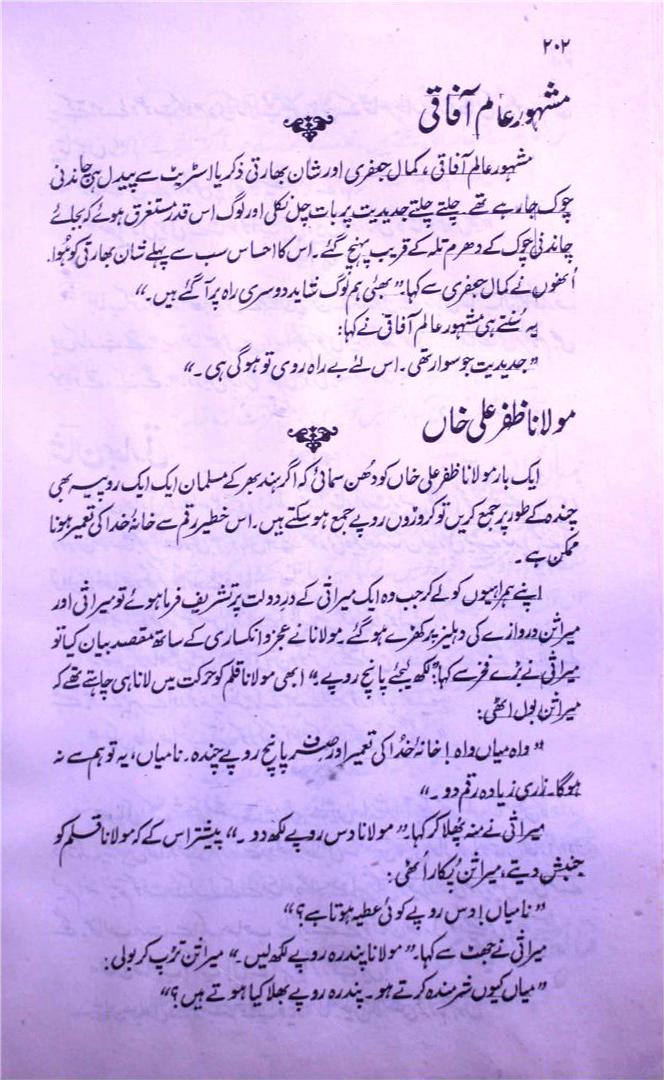 ۲۰۲
مشہور عالم آفاقی
مشہور عالم آفاقی، کمال جعفری اور شان بھارتی ذکریا اسٹریٹ سے پیدل ہی چاندنی
چوک جا رہے تھے۔ چلتے چلتے جدیدیت پر بات چل نکلی اور لوگ اس قدر مستغرق ہوئے کہ بجائے
چاندنی چوک کے دھرم تلہ کے قریب پہنچ گئے۔ اس کا احساس سب سے پہلے شان بھارتی کو ہُوا۔
اُنھوں نے کمال جعفری سے کہا۔ "بھئی ہم لوگ شاید دوسری راہ پر آ گئے ہیں۔"
یہ سُنتے ہی مشہور عالم آفاقی نے کہا:
"جدیدیت جو سوار تھی۔ اس لئے بے راہ روی تو ہو گی ہی۔"
مولانا ظفر علی خاں
ایک بار مولانا ظفر علی خاں کو دُھن سمائی کہ اگر ہند بھر کے مسلمان ایک ایک روپیہ بھی
چندہ کے طور پر جمع کریں تو کروڑوں روپے جمع ہو سکتے ہیں۔ اس خطیر رقم سے خانۂ خدا کی تعمیر ہونا
ممکن ہے۔
اپنے ہمراہیوں کو لے کر جب وہ ایک میراثی کے درِ دولت پر تشریف فرما ہوئے تو میراثی اور
میراثن دروازے کی دہلیز پر کھڑے ہو گئے۔ مولانا نے عجز و انکساری کے ساتھ مقصد بیان کیا تو
میراثی نے بڑے فخر سے کہا "لکھ لیجئے پانچ روپے۔" ابھی مولانا قلم کو حرکت میں لانا ہی چاہتے تھے کہ
میراثن بول اٹھی:
"واہ میاں واہ! خانۂ خُدا کی تعمیر اور صِرف پانچ روپے چندہ۔ نا میاں، یہ تو ہم سے نہ
ہو گا۔ ذری زیادہ رقم دو۔"
میراثی نے منہ پھلا کر کہا۔ "مولانا دس روپے لکھ دو۔" پیشتر اس کے کہ مولانا قلم کو
جنبش دیتے، میراثن پُکار اُٹھی:
"نا میاں! دس روپے کوئی عطیہ ہوتا ہے؟"
میراثی نے جھٹ سے کہا۔ "مولانا پندرہ روپے لکھ لیں۔" میراثن تڑپ کر بولی:
"میاں کیوں شرمندہ کرتے ہو۔ پندرہ روپے بھلا کیا ہوتے ہیں؟"